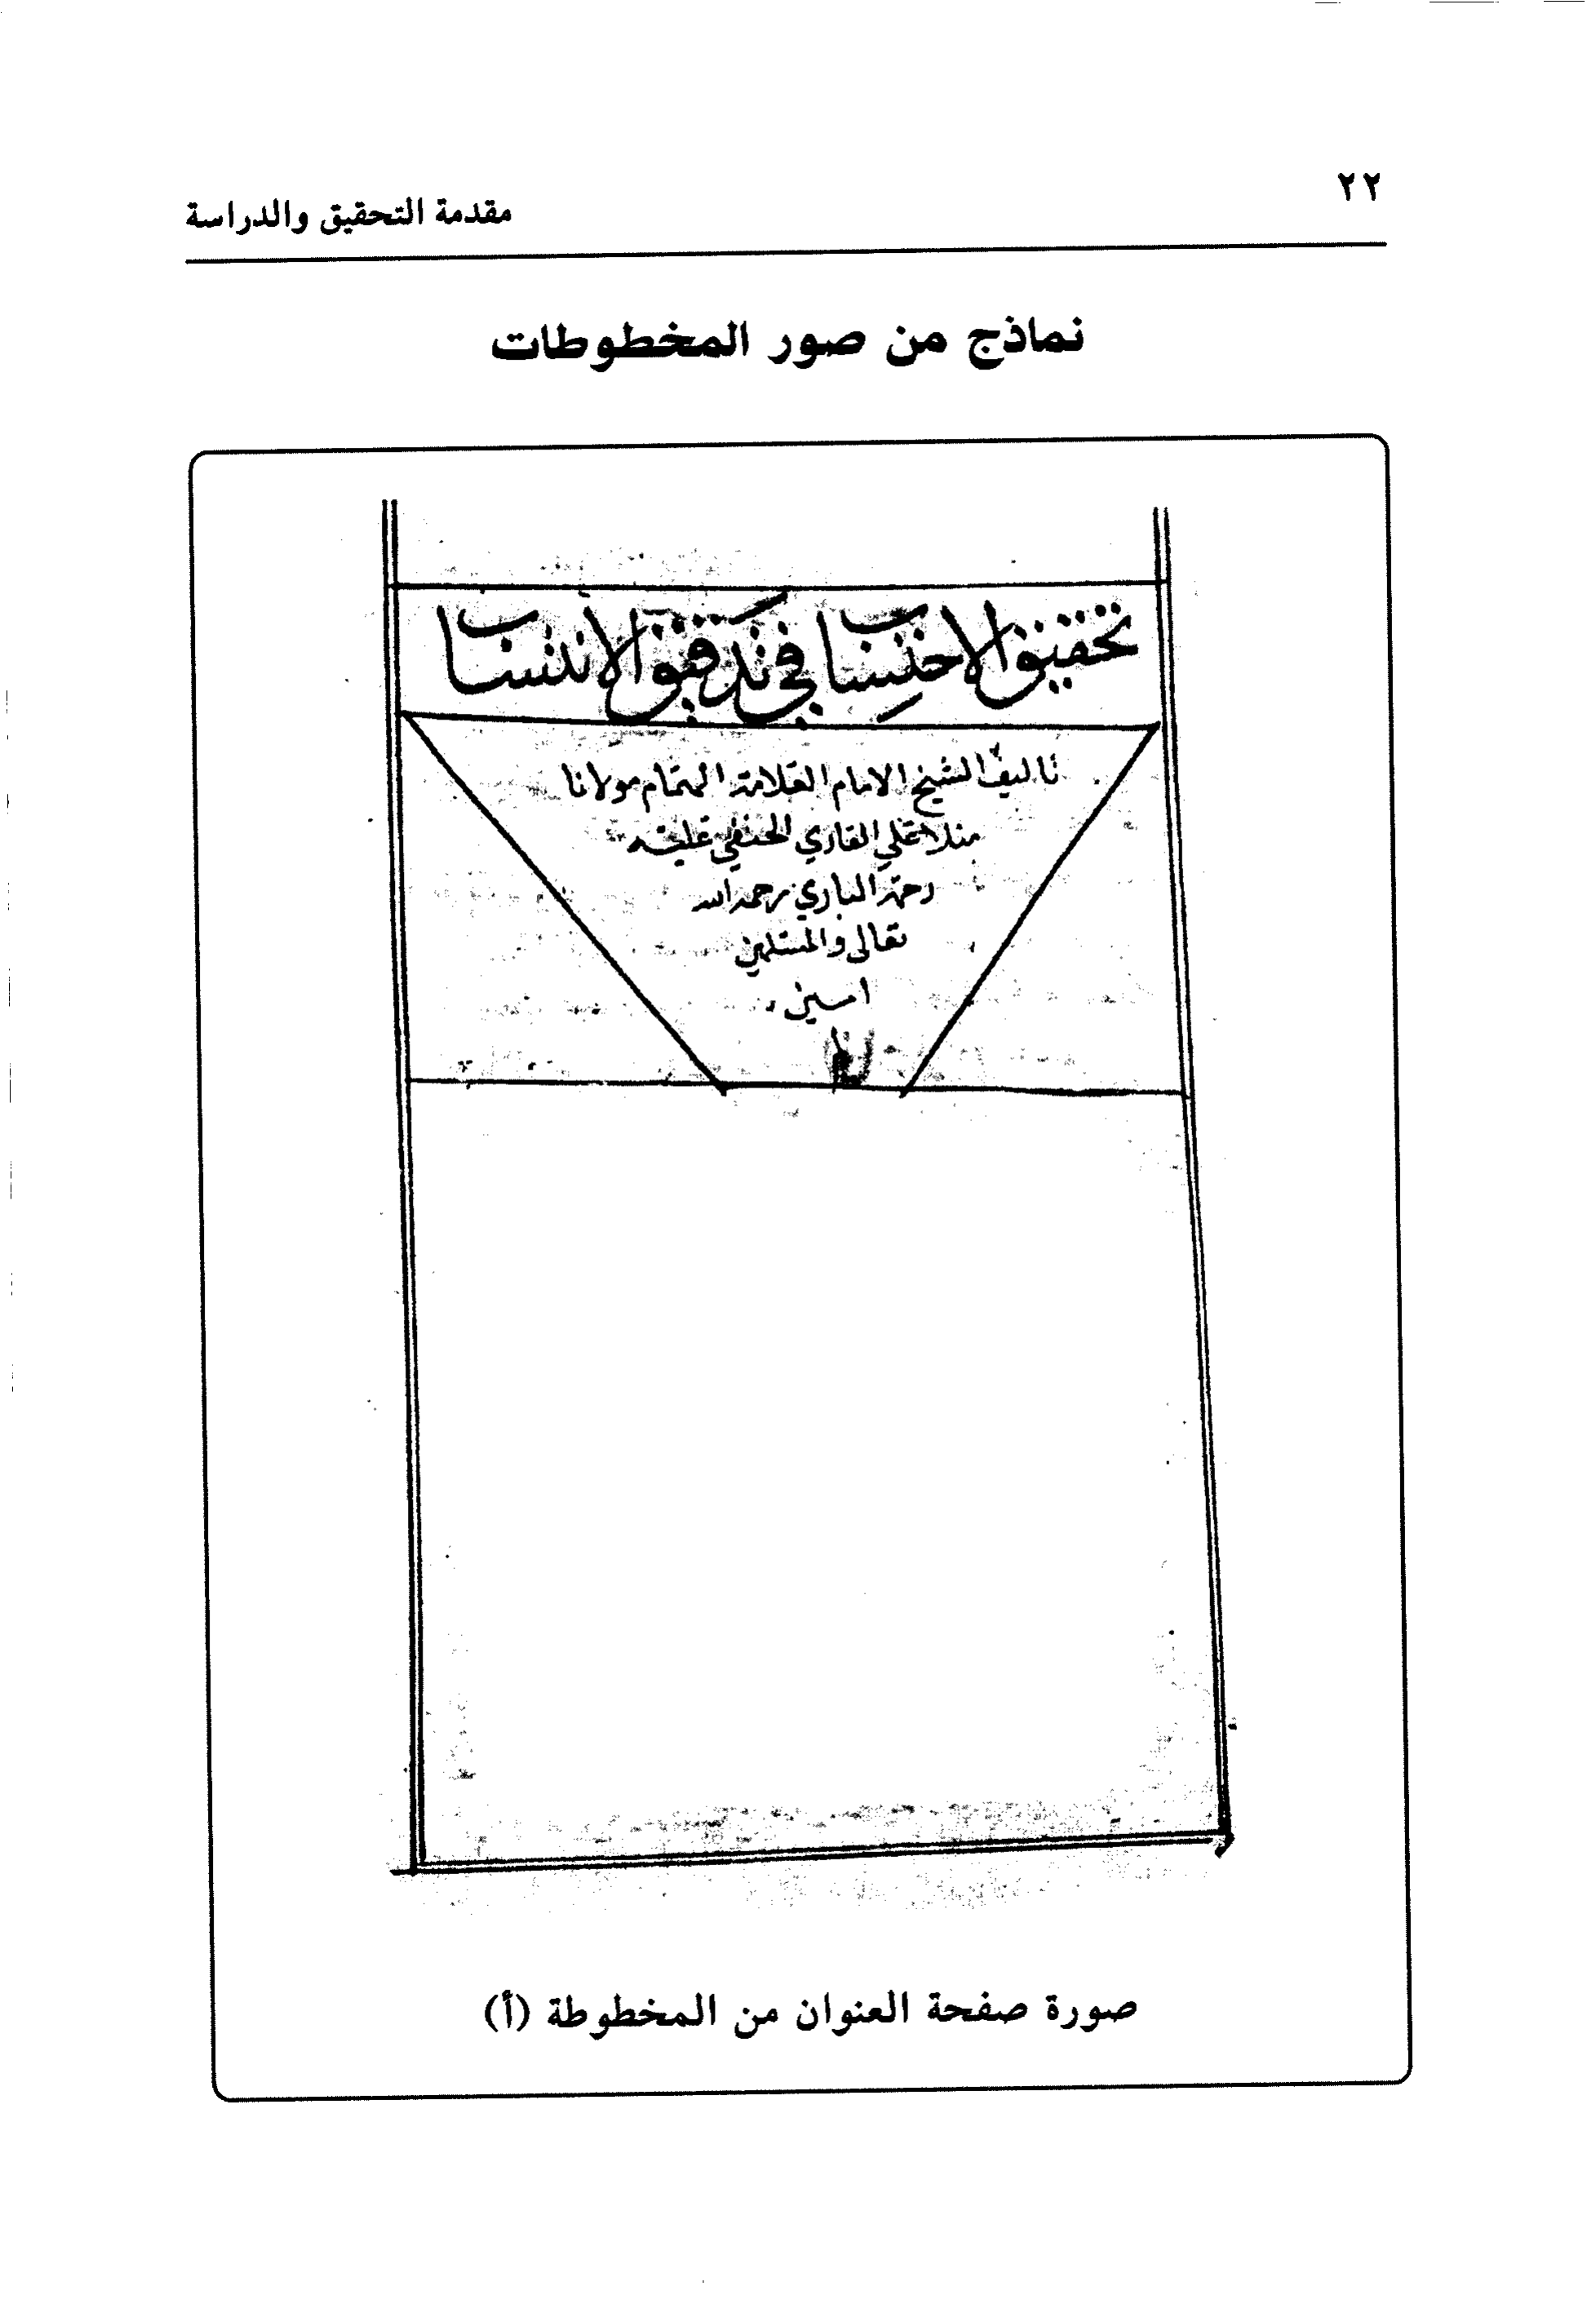 ٢٢
مقدمة التحقيق والدراسة
نماذج من صور المخطوطات
تحقيق الاحتساب في تدقيق الانتساب
تاليف الشيخ الامام العلامة الهمام مولانا
منلا علي القاري الحنفي عليه
رحمة الباري رحمه الله
تعالى والمسلمين
امين
صورة صفحة العنوان من المخطوطة (أ)